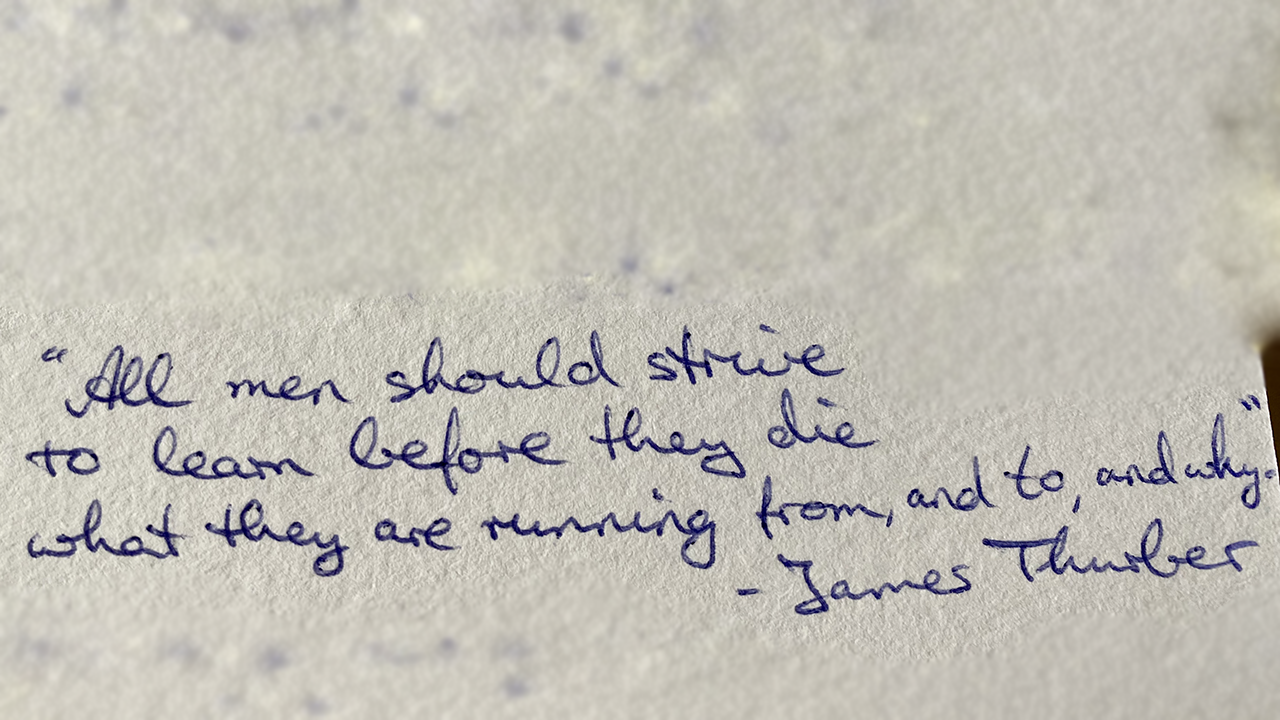 “All men should strive
to learn before they die
what they are running from, and to, and why.”
- James Thurber